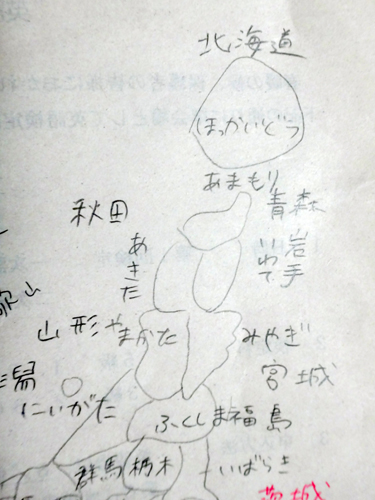 北海道
ほっかいどう
あまもり
青森
秋田
あきた
岩手
いわて
山形
やまかた
みやぎ
宮城
潟
にいがた
ふくしま
福島
群馬
栃木
いばらき
茨城